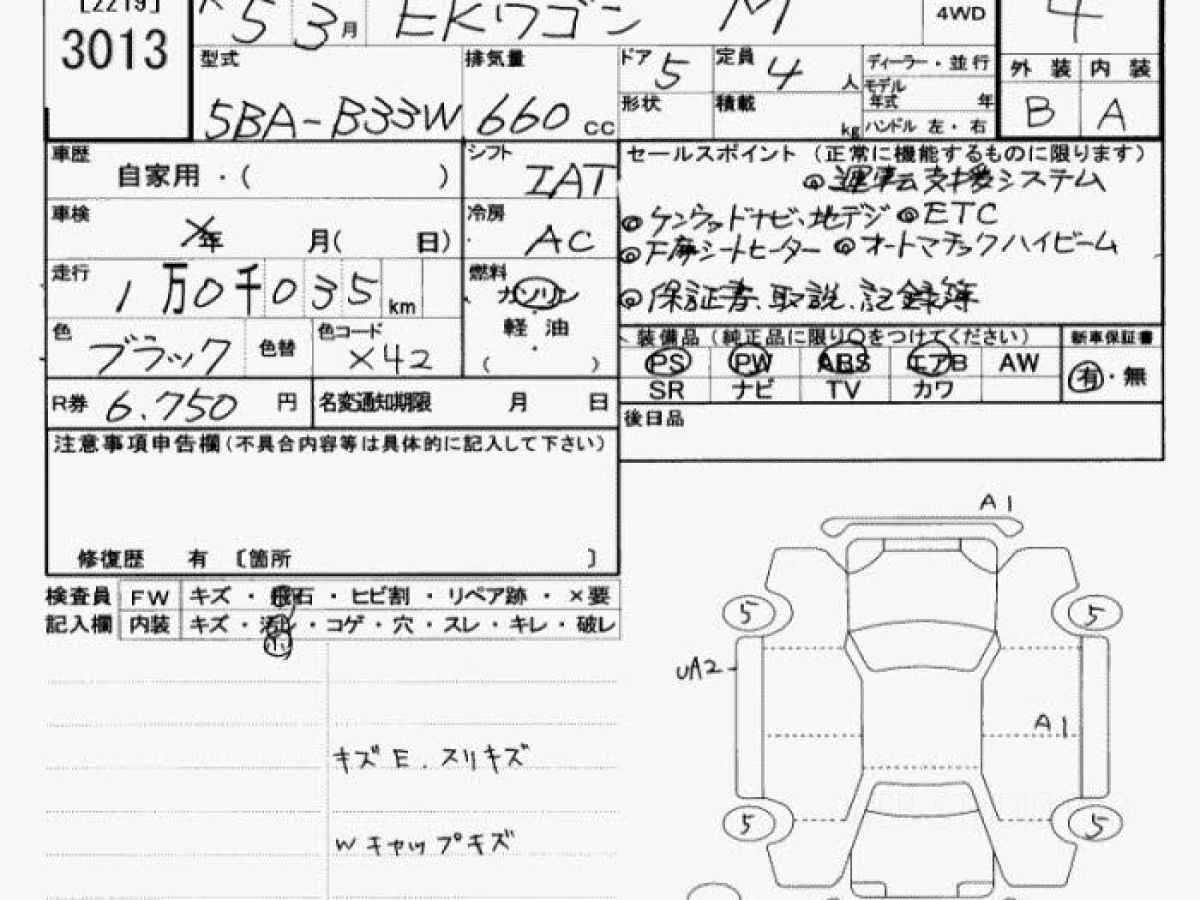 [2219]
3013
5 3月 EKワゴン M 4WD 4
型式 5BA-B33W
排気量 660 cc
ドア 5
定員 4 人
形状
積載 kg
ディーラー・並行
モデル年式 年
ハンドル 左・右
外装 内装
B A
車歴 自家用・( )
シフト IAT
車検 年 月( 日)
冷房 AC
走行 1万0千035 km
燃料 ガソリン
軽油
( )
色 ブラック 色替
色コード X42
R券 6.750 円
名変通知期限 月 日
セールスポイント (正常に機能するものに限ります)
◎運転支援システム
◎ケンウッドナビ、地デジ ◎ETC
◎F席シートヒーター ◎オートマチックハイビーム
◎保証書、取説、記録簿
装備品(純正品に限り○をつけてください) 新車保証書
PS PW ABS エアB AW
SR ナビ TV カワ
有・無
後日品
注意事項申告欄(不具合内容等は具体的に記入して下さい)
修復歴 有 〔箇所 〕
検査員 FW キズ・飛石・ヒビ割・リペア跡・×要
記入欄 内装 キズ・汚レ・コゲ・穴・スレ・キレ・破レ
小
キズE.スリキズ
Wキャップキズ
A1
5 5
UA2
A1
5 5